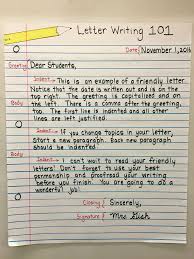 Letter Writing 101
Date November 1, 2016
Greeting Dear Students,
Indent→ This is an example of a friendly letter.
Notice that the date is written out and is on
the top right. The greeting is capitalized and on
the left. There is a comma after the greeting,
too. The first line is indented and all other
lines are left justified.
Body Indent→ If you change topics in your letter,
start a new paragraph. Each new paragraph
should be indented.
Body Indent→ I can't wait to read your friendly
letters! Don't forget to use your best
penmanship and proofread your writing
before you finish. You are going to do a
wonderful job!
Closing Sincerely,
Signature Mrs.